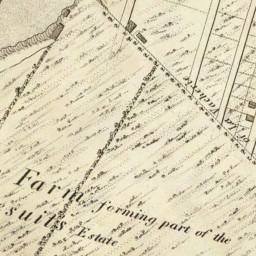 Farm forming part of the
suits Estate